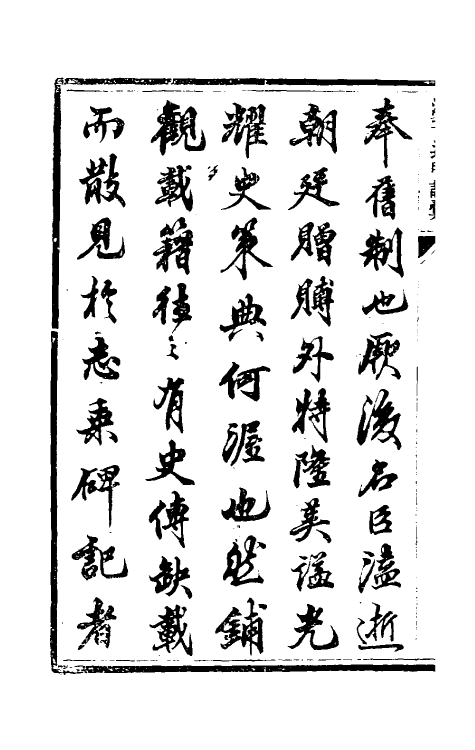 奉舊制也厥後名臣溘逝
朝廷贈賻外特隆美謚光
耀史策典何渥也然鋪
觀載籍往往有史傳缺載
而散見於志乘碑記者